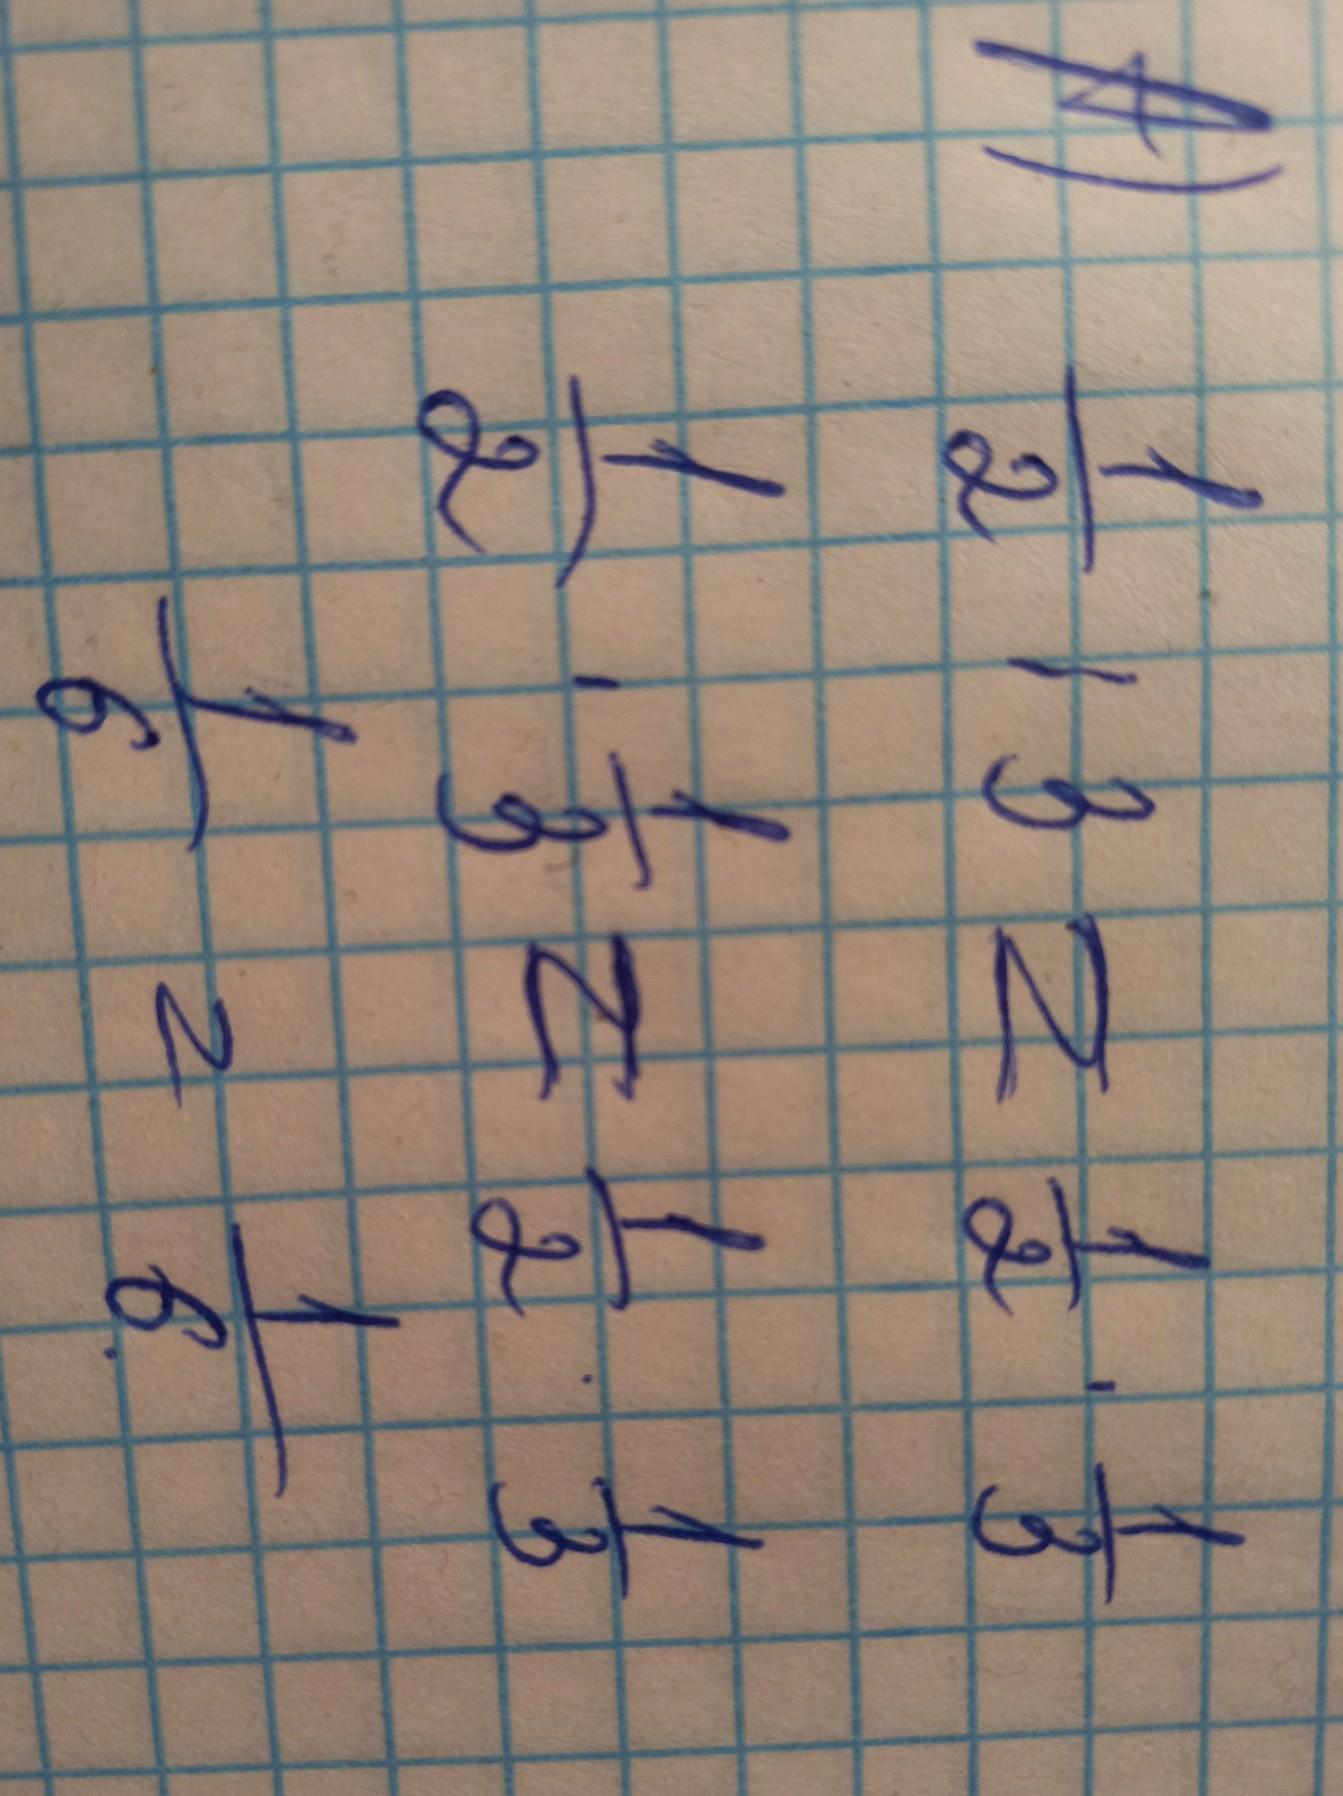 1) 1/2 : 3 = 1/2 · 1/3
1/2 · 1/3 = 1/2 · 1/3
1/6 = 1/6.